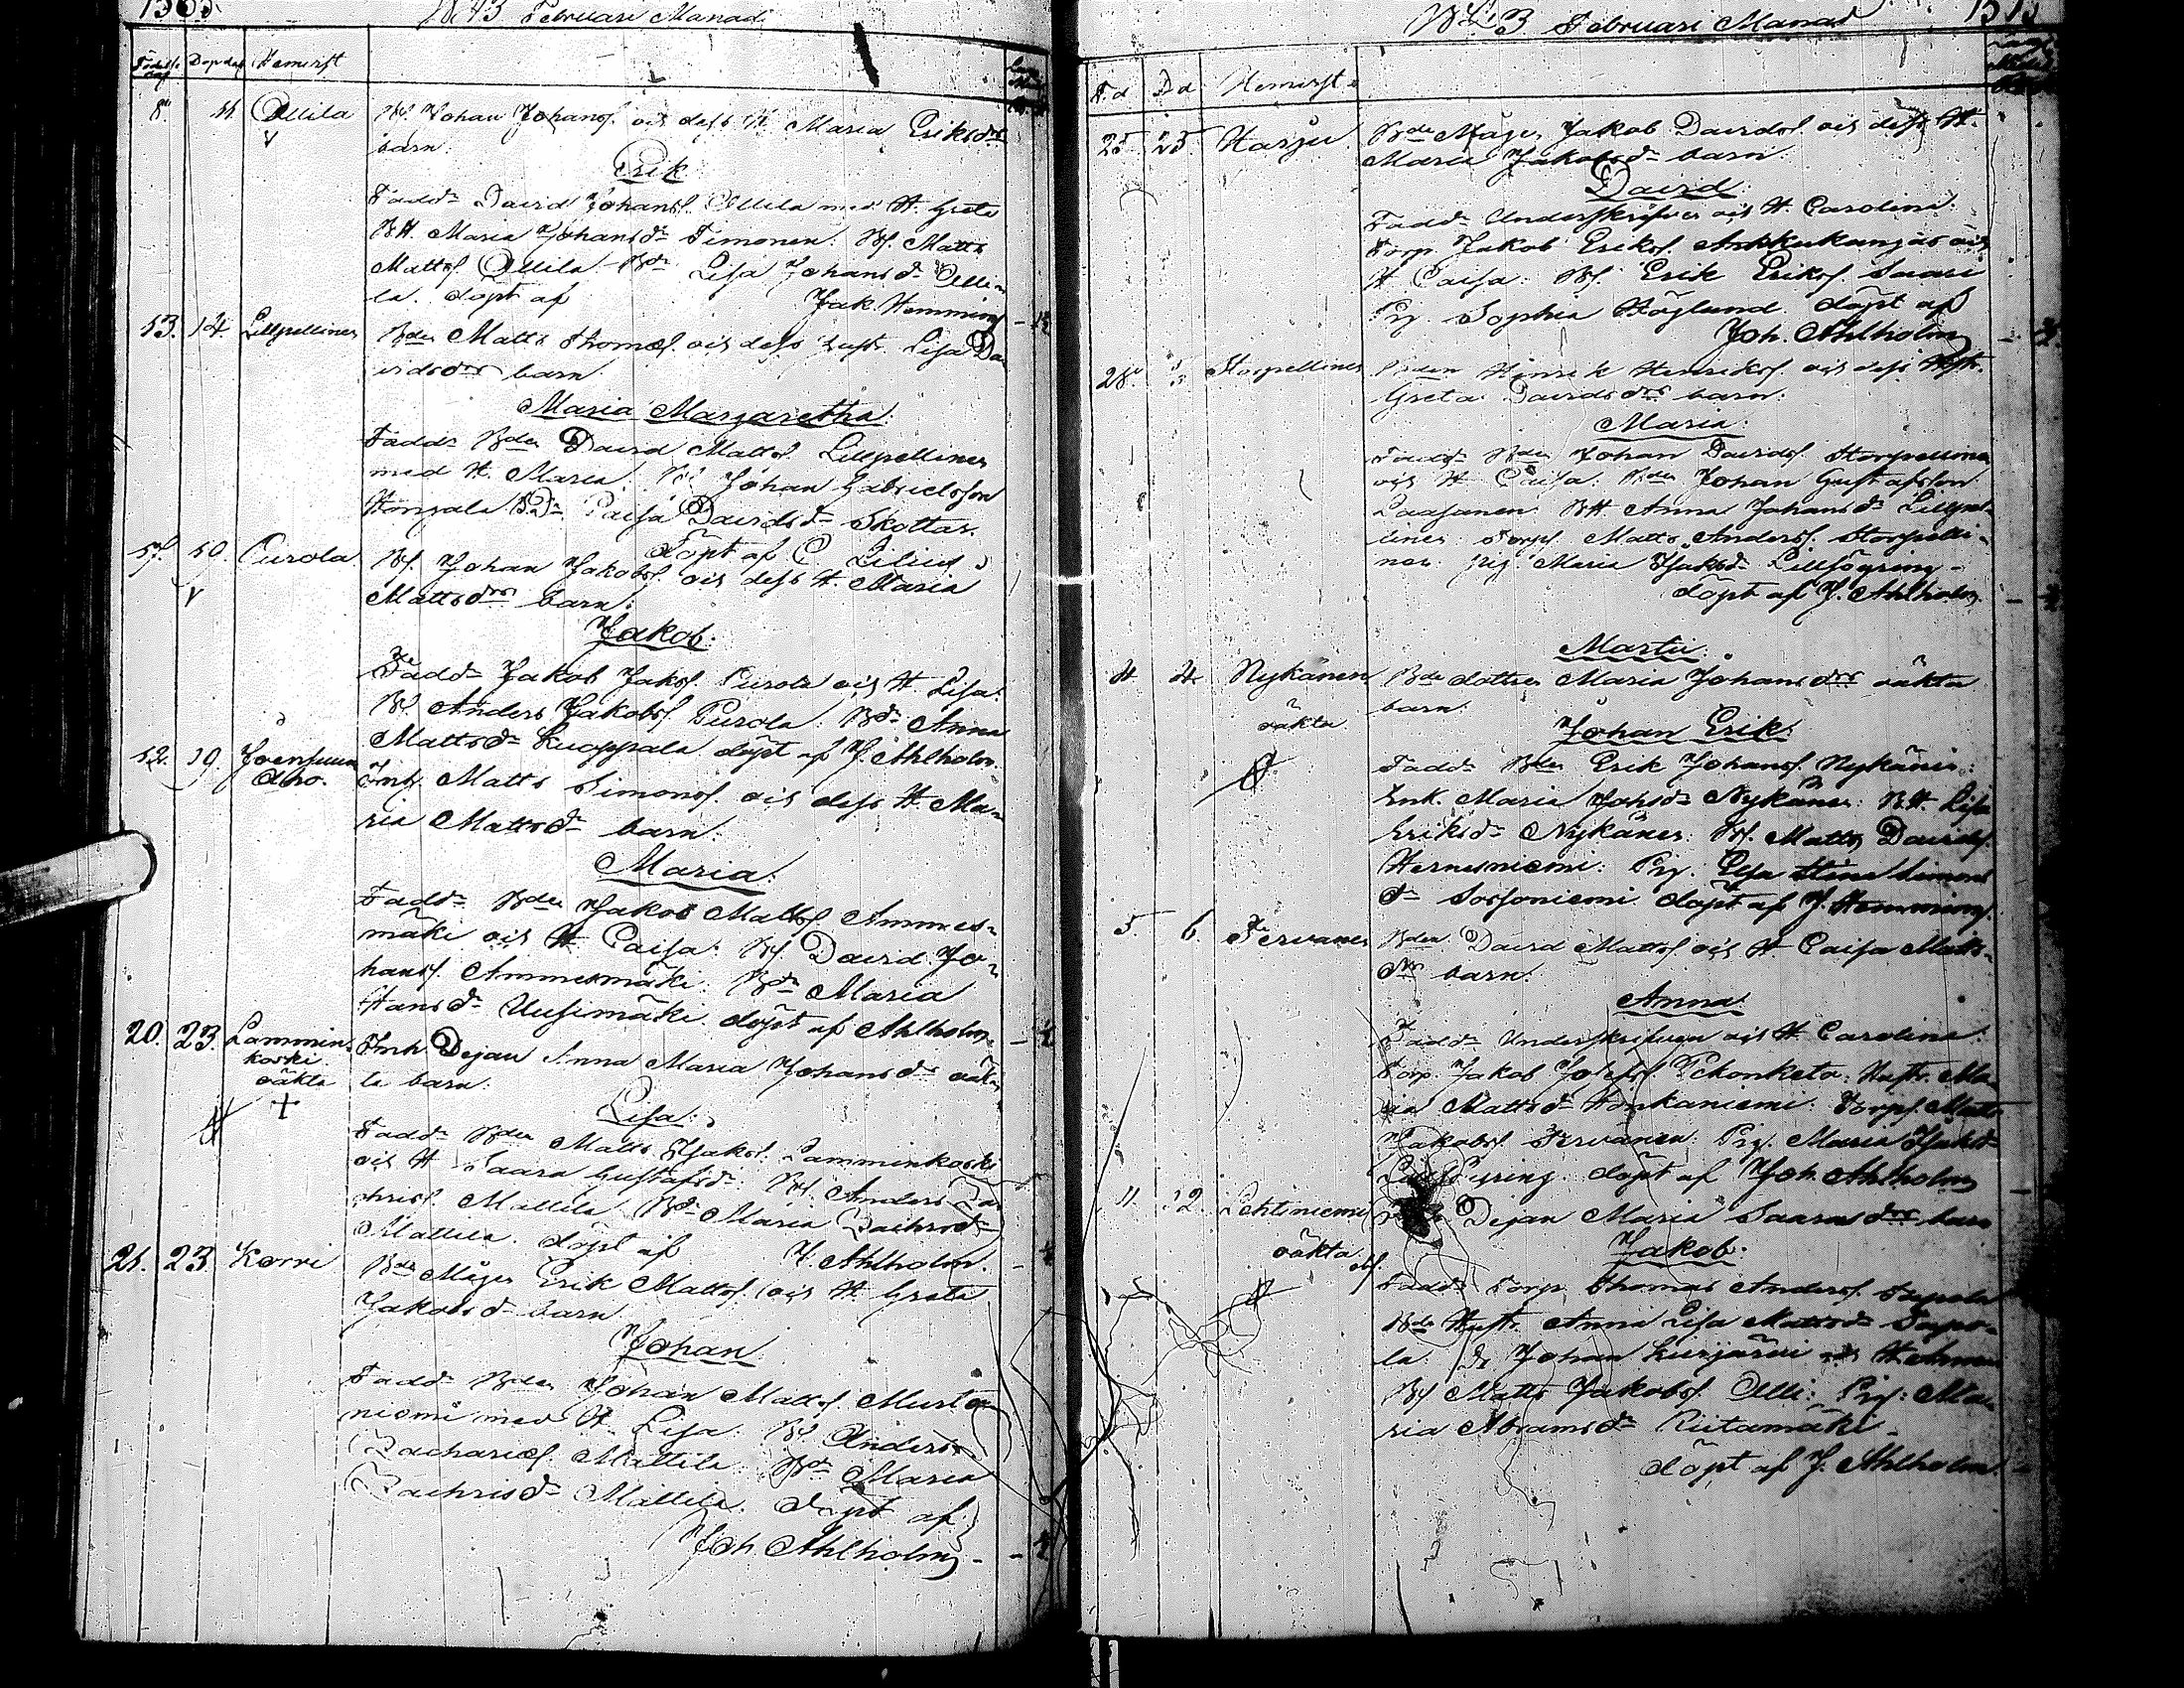 1843 Februari Månad
Dopdag Hemvist
8. 11. Ollila Bs. Johan Johans. och dess H. Maria Eriksdr
barn.
Erik
Fadd. David Johans. Ollila med H. Greta
BH. Maria Johansdr Timonen. Bs. Matts
Matts. Ollila. Bdr Lisa Johansdr Olli-
la. döpt af Jak. Hemming
13. 14. Lillpellinen Bden Matts Thomas. och dess hustr. Lisa Da-
vidsdrs barn
Maria Margaretha.
Fadd. Bden David Matts. Lillpellinen
med H. Maria. Bs. Johan Gabrielsson
Caisa Davidsdr Skottar.
döpt af C. Lilius
17. Purola Bs. Johan Jakobs. och dess H. Maria
Mattsdrs barn.
Jakob.
Fadd. Jakob Jakos. Purola och H. Lisa.
Bs. Anders Jakobs. Purola. Bdr Anna
Mattsdr Kuoppala döpt af J. Ahlholm.
12. 19. Joensuun Inh. Matts Simons. och dess H. Ma-
aho. ria Mattsdr barn.
Maria.
Fadd. Bden Jakob Matts. Ammes-
mäki och H. Caisa. Bs. David Jo-
hans. Ammesmäki. Bdr Maria
Hansdr Uusimäki. döpt af Ahlholm.
20. 23. Lammin- Inh. Dejan Anna Maria Johansdr oäk-
koski ta barn.
oäkta
Lisa.
Fadd. Bden Matts Jakos. Lamminkoski
och H. Saara Gustafsdr. Bs. Anders Za-
chris. Mattila. Bdr Maria Zachrisdr
Mattila. döpt af J. Ahlholm.
21. 23. Korvi Bde Måge Erik Matts. och H. Greta
Jakobsdr barn
Johan
Fadd. Bden Johan Matts. Musta-
niemi med H. Lisa. Bs. Anders
Zacharies. Mattila. Bdr Maria
Zachrisdr Mattila. döpt af
Joh. Ahlholm
1843 Februari Månad
F.d D.d Hemvist
25 25 Harju Bde Måge Jakob Davids. och dess H.
Maria Jakobsdr barn.
David.
Fadd. Underskrifven och H. Carolina.
Torp. Jakob Eriks. Ankkukangas och
H. Caisa. Bs. Erik Eriks. Saari
Pig. Sophia Höglund. döpt af
Joh. Ahlholm
28. Storpellinen Bden Hinrik Henriks. och dess Hustr.
Greta Davidsdrs barn.
Maria.
Fadd. Bden Johan Davids. Storpellinen
och H. Caisa. Bden Johan Gustafsson
Laasanen. BH. Anna Johansdr Lillpel-
linen. Torp. Matts Anders. Storpelli-
nen. Pig. Maria Jakobsdr Lillsöyring
döpt af J. Ahlholm.
Martii.
4. 4. Nykänen Bde dotter Maria Johansdrs oäkta
oäkta barn.
Johan Erik.
Fadd. Bden Erik Johans. Nykänen.
Enk. Maria Johsdr Nykänen. BH. Lisa
Eriksdr Nykänen. Bs. Matts Davids.
Hernesniemi. Pig. Stina Simons
dr Sorsoniemi döpt af J. Hemming.
5. 6. Tervanen Bden David Matts. och H. Caisa Matts-
drs barn.
Anna.
Fadd. Underskrifven och H. Carolina.
Torp. Jakob Hustr. Ma-
ria Mattsdr Honkaniemi. Torps. Matts
Jakobs. Tervanen. Pig. Maria Jakobsdr
döpt af Joh. Ahlholm
11. 12. Lehtiniemi Dejan Maria Saarasdrs barn
oäkta
Jakob.
Fadd. Torp. Thomas Anders.
Bde Hustr. Anna Lisa Mattsdr
la. Johan och H. Anna
Bs Matts Jakobs. Olli. Pig. Ma-
ria Abramsdr Riitamäki.
döpt af J. Ahlholm.